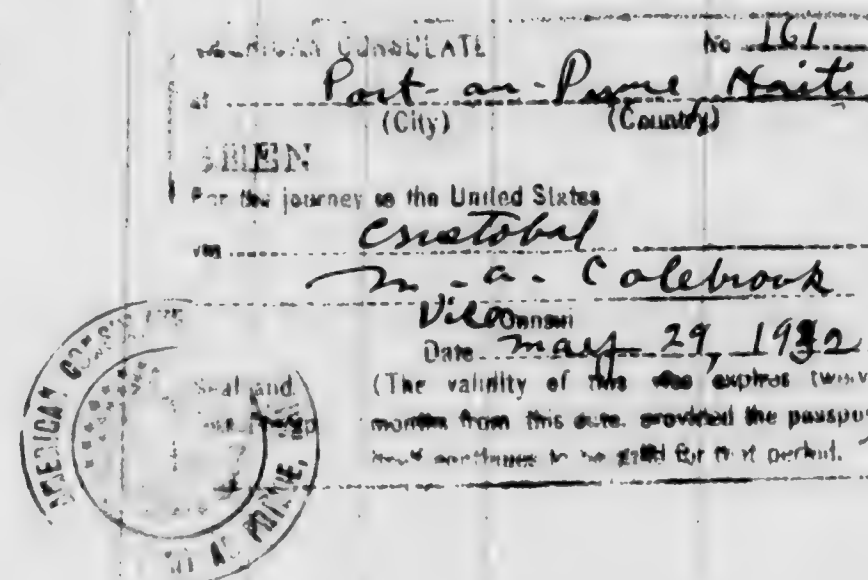 AMERICAN CONSULATE No 161
at Port-au-Prince Haiti
(City) (Country)
SEEN
For the journey to the United States
via Cristobal
M-a-Colebrook
Vice Consul
Date May 29, 1932
Seal and (The validity of this visa expires twelve
months from this date, provided the passport
continues to be valid for that period.
AMERICAN CONSULATE
AU PRINCE,